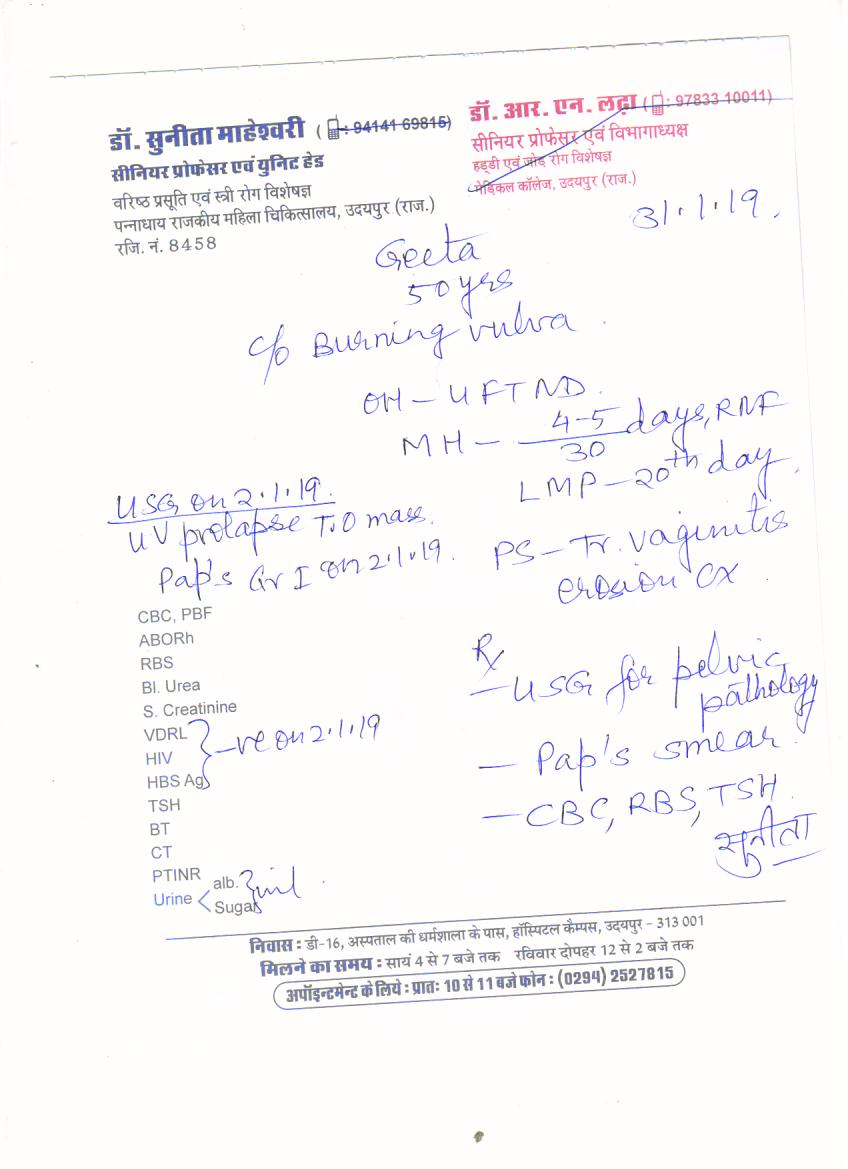 डॉ. सुनीता माहेश्वरी ( : 94141 69815)
सीनियर प्रोफेसर एवं युनिट हेड
वरिष्ठ प्रसूति एवं स्त्री रोग विशेषज्ञ
पन्नाधाय राजकीय महिला चिकित्सालय, उदयपुर (राज.)
रजि. नं. 8458
डॉ. आर. एन. लढ़ा ( : 97833 10011)
सीनियर प्रोफेसर एवं विभागाध्यक्ष
हड्डी एवं जोड़ रोग विशेषज्ञ
मेडिकल कॉलेज, उदयपुर (राज.)
31.1.19.
Geeta
50 yrs
c/o Burning vulva.
OH - 4 FTND.
MH - 4-5/30 days, RNF
LMP - 20th day.
PS - Tr. vaginitis
erosion CX
USG on 2.1.19.
UV prolapse T.O mass.
Pap's Gr I on 2.1.19.
CBC, PBF
ABORh
RBS
Bl. Urea
S. Creatinine
VDRL
HIV } -ve on 2.1.19
HBS Ag
TSH
BT
CT
PTINR
Urine < alb. } nil.
Sugar
Rx
- USG for pelvic
pathology
- Pap's smear.
- CBC, RBS, TSH.
सुनीता
निवास : डी-16, अस्पताल की धर्मशाला के पास, हॉस्पिटल कैम्पस, उदयपुर - 313 001
मिलने का समय : सायं 4 से 7 बजे तक रविवार दोपहर 12 से 2 बजे तक
अपॉइन्टमेन्ट के लिये : प्रातः 10 से 11 बजे फोन : (0294) 2527815